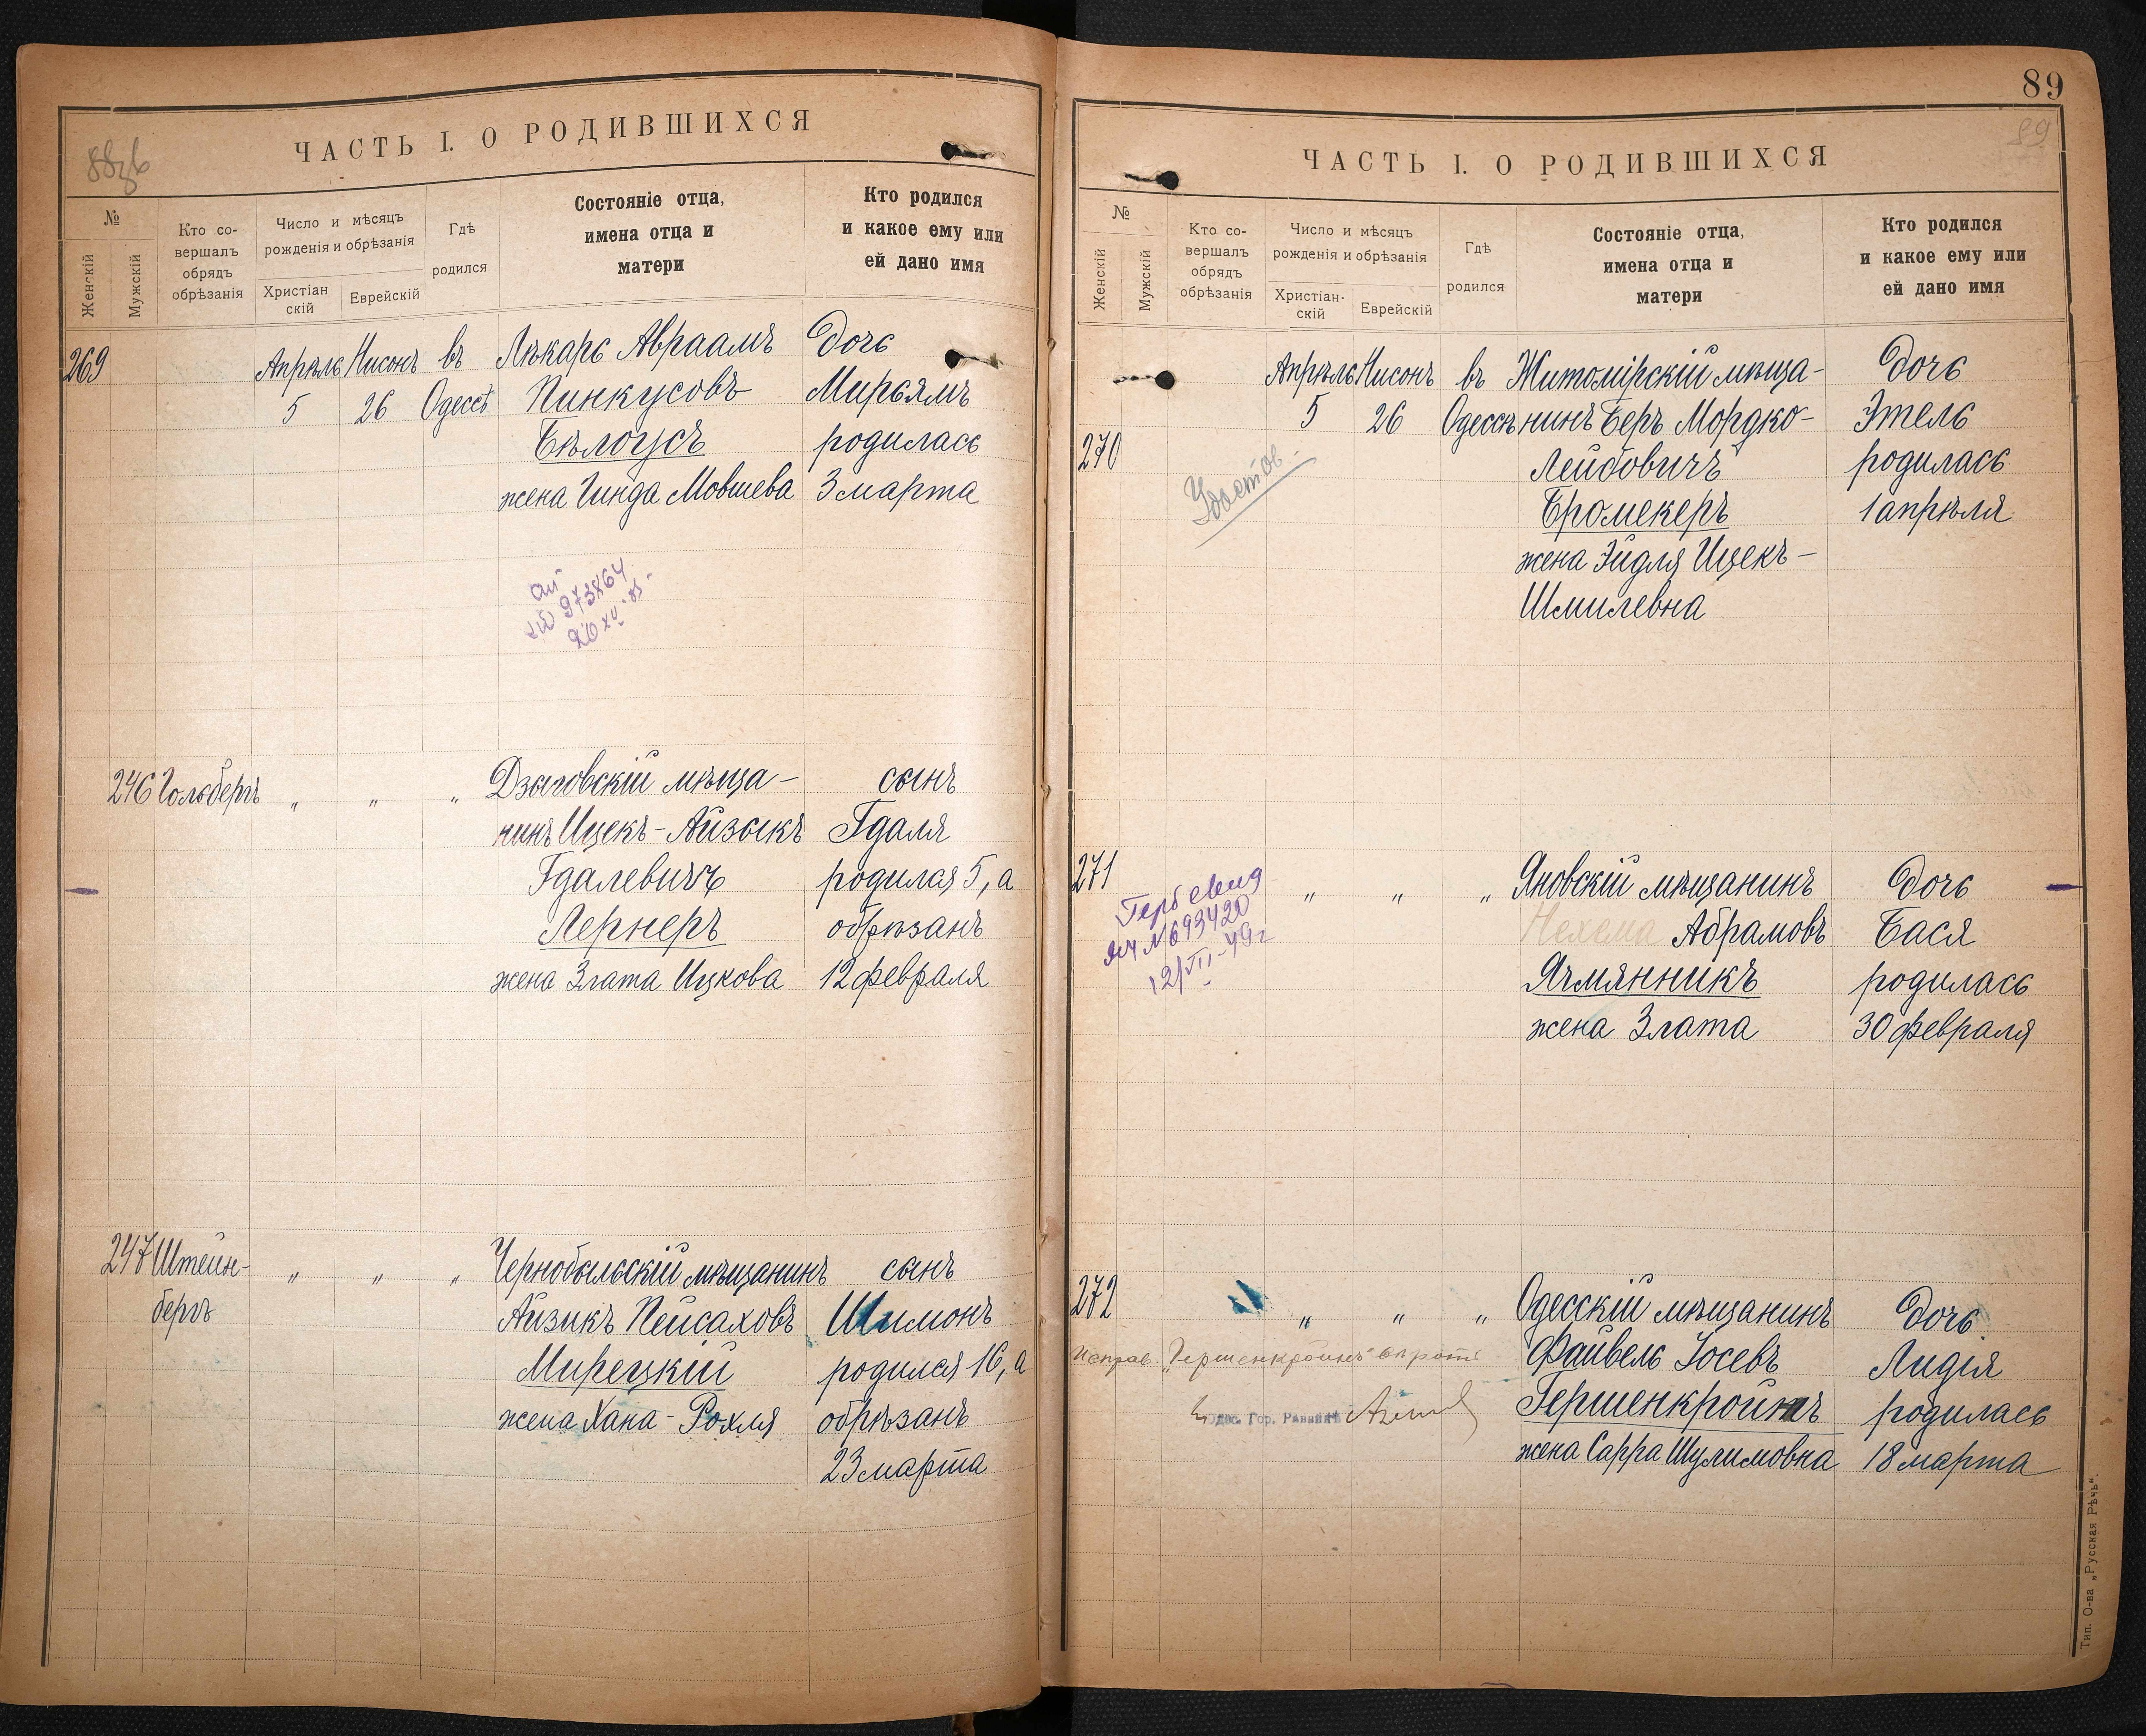 ЧАСТЬ I. О РОДИВШИХСЯ
88зв
№
Женскій
Мужскій
Кто со-
вершалъ
обрядъ
обрѣзанія
Число и мѣсяцъ
рожденія и обрѣзанія
Христіан
скій
Еврейскій
Гдѣ
родился
Состояніе отца,
имена отца и
матери
Кто родился
и какое ему или
ей дано имя
269 Апрѣль Нисонъ въ Лѣкарь Авраамъ Дочь
5 26 Одессѣ Пинкусовъ Мирьямъ
Бѣлоусъ родилась
жена Гинда Мовшева 3 марта
973864
246 Гольбергъ " " " Дзыговскій мѣща- сынъ
нинъ Ицекъ-Айзыкъ Гдаля
Гдалевичъ родился 5, а
Лернеръ обрѣзанъ
жена Злата Ицкова 12 февраля
247 Штейн- " " " Чернобыльскій мѣщанинъ сынъ
бергъ Айзикъ Пейсаховъ Шимонъ
Мирецкій родился 16, а
жена Хана-Рохля обрѣзанъ
23 марта
89
89
ЧАСТЬ I. О РОДИВШИХСЯ
№
Женскій
Мужскій
Кто со-
вершалъ
обрядъ
обрѣзанія
Число и мѣсяцъ
рожденія и обрѣзанія
Христіан-
скій
Еврейскій
Гдѣ
родился
Состояніе отца,
имена отца и
матери
Кто родился
и какое ему или
ей дано имя
Апрѣль Нисонъ въ Житомірскій мѣща- Дочь
5 26 Одессѣ нинъ Беръ Мордко- Этель
270 Лейбовичъ родилась
Удостов.
Бромекеръ 1 апрѣля
жена Эйдля Ицекъ-
Шмилевна
271 " " " Яновскій мѣщанинъ Дочь
Нехема Абрамовъ Бася
Ячмянникъ родилась
жена Злата 30 февраля
№ 693420
12/VII-49г
272 " " " Одесскій мѣщанинъ Дочь
Файвель Іосевъ Лидія
Исправ. "Гершенкройнъ"
Гершенкройнъ родилась
Одес. Гор. Раввинъ
жена Сарра Шулимовна 18 марта
Тип. О-ва „Русская Рѣчь".